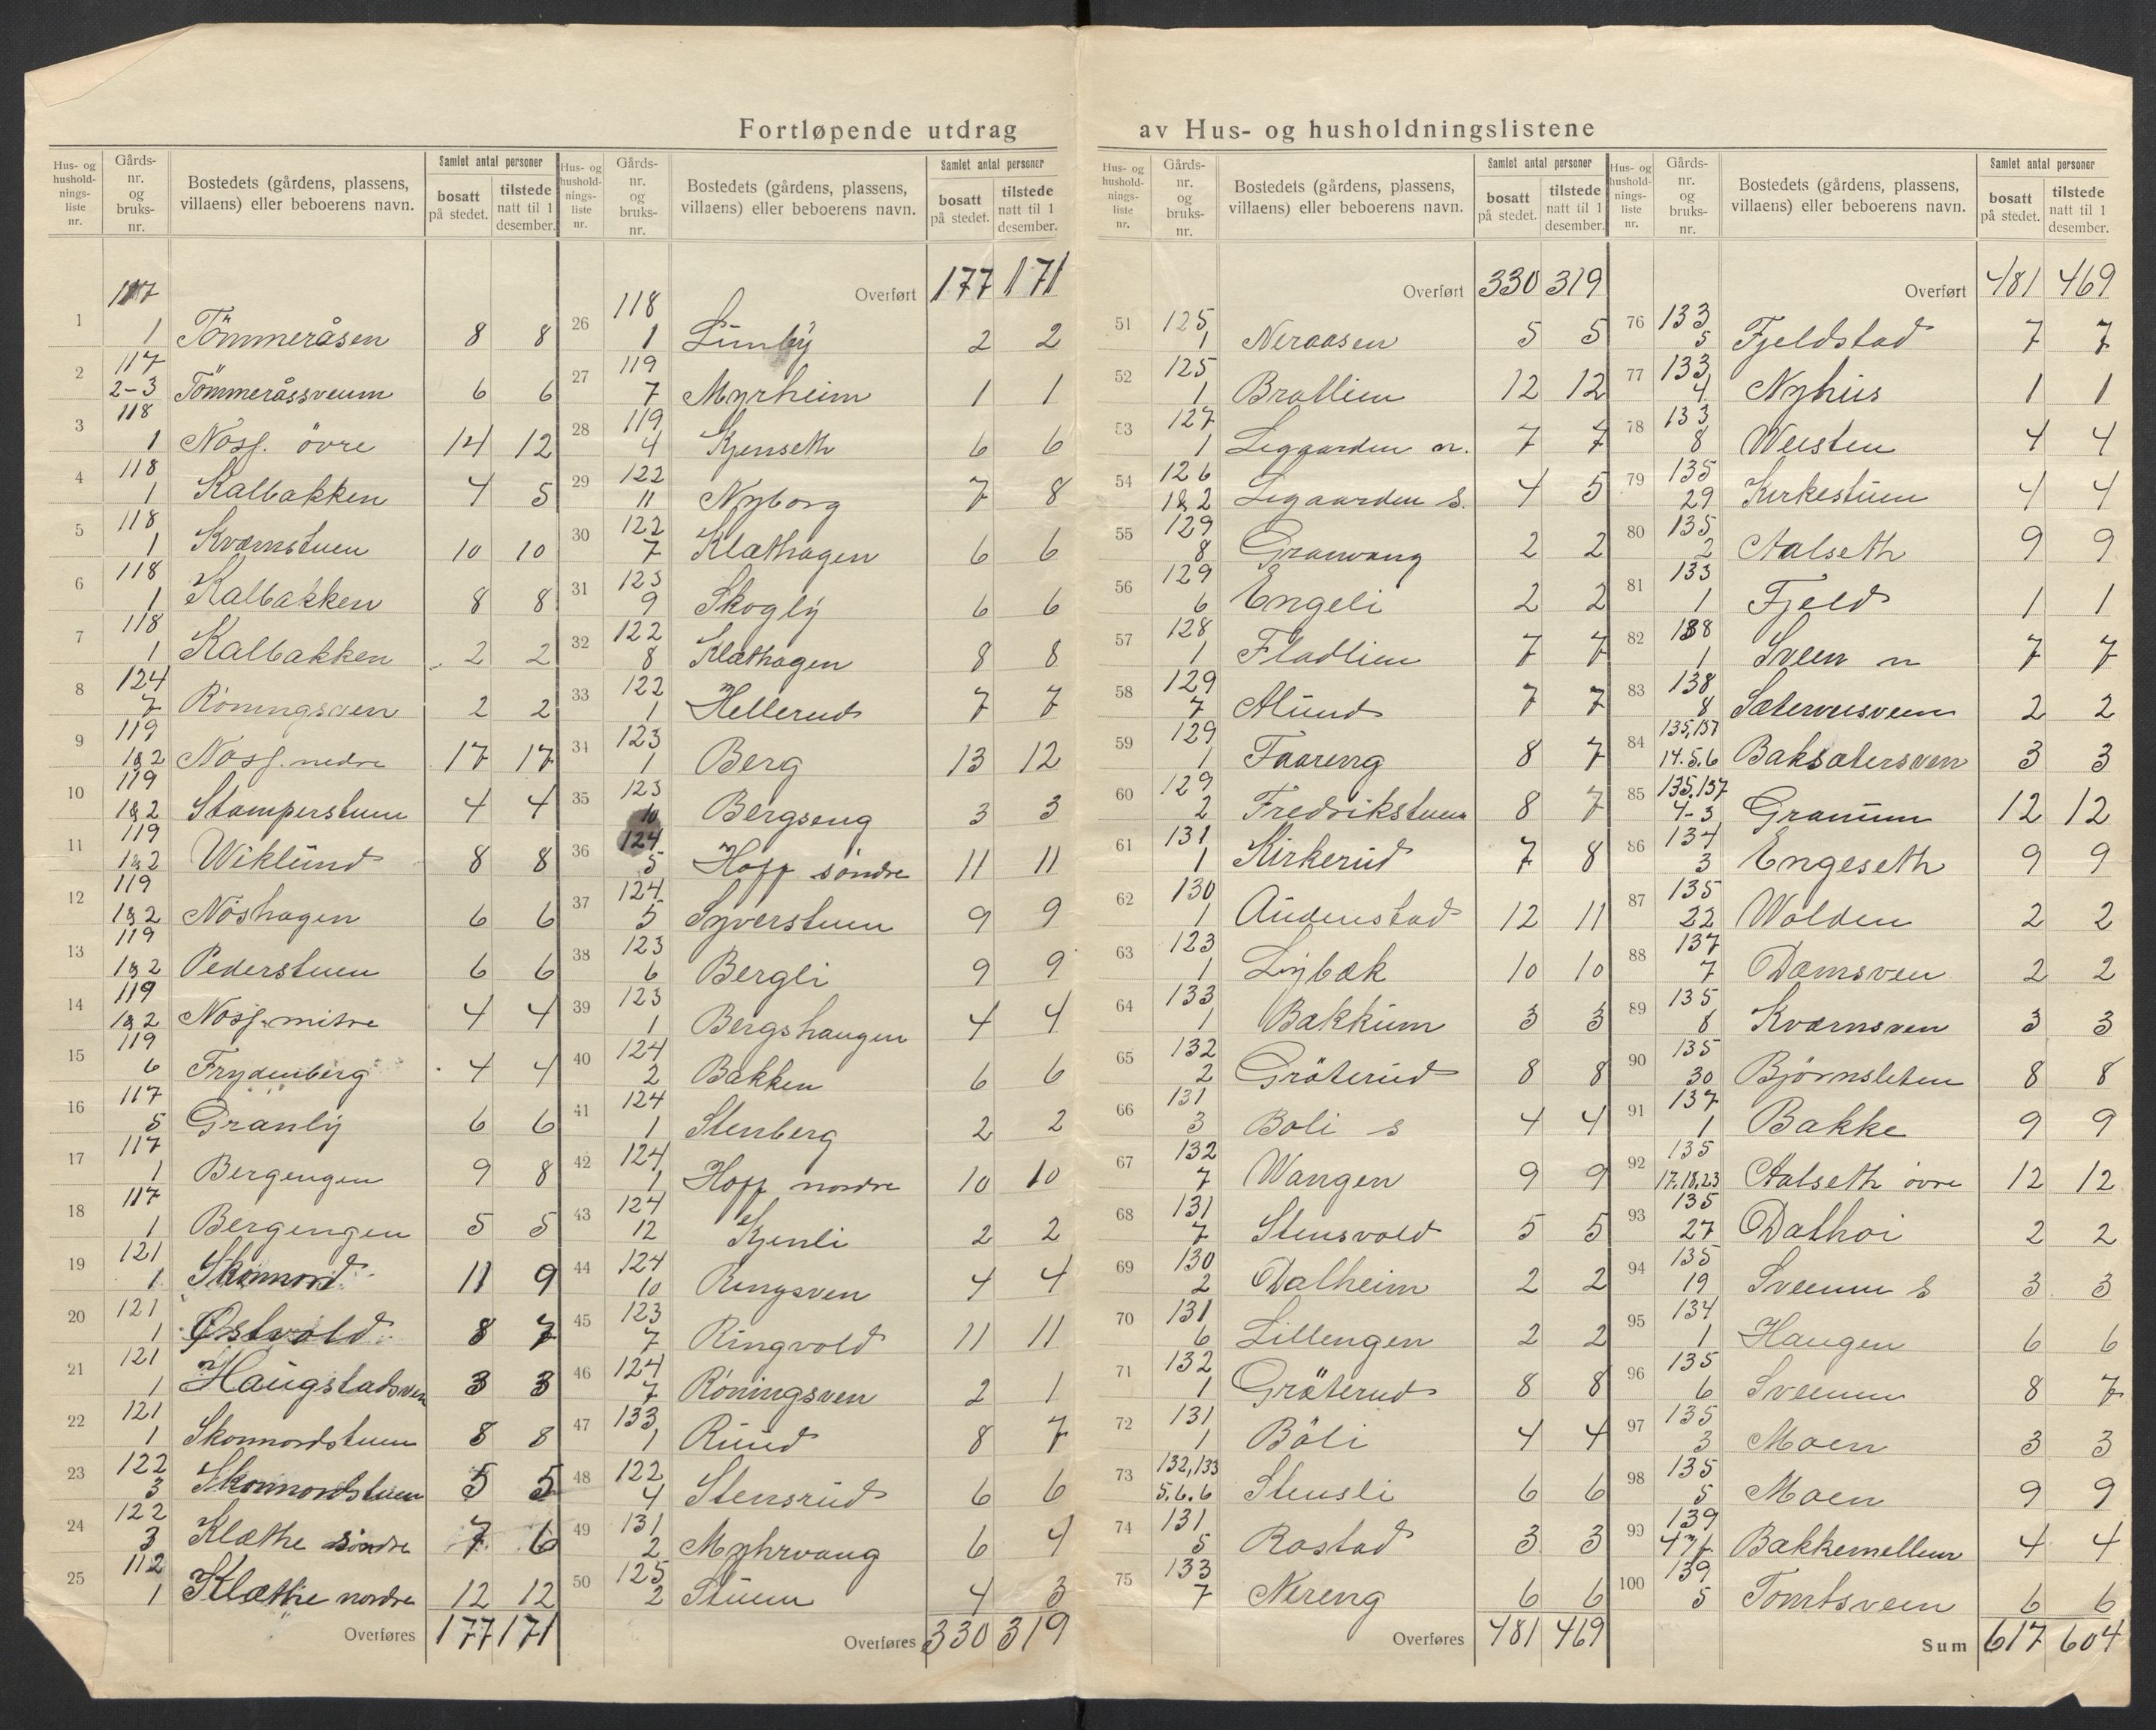 Fortløpende utdrag av Hus- og husholdningslistene
Hus- og hushold-nings-liste nr. | Gårds-nr. og bruks-nr. | Bostedets (gårdens, plassens, villaens) eller beboerens navn. | Samlet antal personer | bosatt på stedet. | tilstede natt til 1 desember.
1 | 117 1 | Tömmeråsen | 8 | 8
2 | 117 2-3 | Tömmeråssveum | 6 | 6
3 | 118 1 | Nösf. övre | 14 | 12
4 | 118 1 | Kalbakken | 4 | 5
5 | 118 1 | Kværnstuen | 10 | 10
6 | 118 1 | Kalbakken | 8 | 8
7 | 118 1 | Kalbakken | 2 | 2
8 | 124 7 | Röningsven | 2 | 2
9 | 119 1&2 | Nösf. nedre | 17 | 17
10 | 119 1&2 | Stamperstuen | 4 | 4
11 | 119 1&2 | Wiklund | 8 | 8
12 | 119 1&2 | Nöshagen | 6 | 6
13 | 119 1&2 | Pederstuen | 6 | 6
14 | 119 1&2 | Nösf. mitre | 4 | 4
15 | 119 6 | Frydenberg | 4 | 4
16 | 117 5 | Granly | 6 | 6
17 | 117 1 | Bergengen | 9 | 8
18 | 117 1 | Bergengen | 5 | 5
19 | 121 1 | Skonnord | 11 | 9
20 | 121 1 | Østvold | 8 | 7
21 | 121 1 | Haugstadsven | 3 | 3
22 | 121 1 | Skonnordstuen | 8 | 8
23 | 122 3 | Skonnordstuen | 5 | 5
24 | 122 3 | Klæthe söndre | 7 | 6
25 | 112 1 | Klæthe nordre | 12 | 12
Overføres | 177 | 171
Hus- og hushold-nings-liste nr. | Gårds-nr. og bruks-nr. | Bostedets (gårdens, plassens, villaens) eller beboerens navn. | Samlet antal personer | bosatt på stedet. | tilstede natt til 1 desember.
Overført | 177 | 171
26 | 118 1 | Lunby | 2 | 2
27 | 119 7 | Myrheim | 1 | 1
28 | 119 4 | Kjenseth | 6 | 6
29 | 122 11 | Nyborg | 7 | 8
30 | 122 7 | Klæthagen | 6 | 6
31 | 123 9 | Skogly | 6 | 6
32 | 122 8 | Klæthagen | 8 | 8
33 | 122 1 | Hellerud | 7 | 7
34 | 123 1 | Berg | 13 | 12
35 | 123 10 | Bergseng | 3 | 3
36 | 124 5 | Hoff söndre | 11 | 11
37 | 124 5 | Syverstuen | 9 | 9
38 | 123 6 | Bergli | 9 | 9
39 | 123 1 | Bergshaugen | 4 | 4
40 | 124 2 | Bakken | 6 | 6
41 | 124 1 | Stenberg | 2 | 2
42 | 124 1 | Hoff nordre | 10 | 10
43 | 124 12 | Kjenli | 2 | 2
44 | 124 10 | Ringsven | 4 | 4
45 | 123 7 | Ringvold | 11 | 11
46 | 124 7 | Röningsven | 2 | 1
47 | 133 1 | Ruud | 8 | 7
48 | 122 4 | Stensrud | 6 | 6
49 | 131 2 | Myhrvang | 6 | 4
50 | 125 2 | Stuen | 4 | 3
Overføres | 330 | 319
Hus- og hushold-nings-liste nr. | Gårds-nr. og bruks-nr. | Bostedets (gårdens, plassens, villaens) eller beboerens navn. | Samlet antal personer | bosatt på stedet. | tilstede natt til 1 desember.
Overført | 330 | 319
51 | 125 1 | Neraasen | 5 | 5
52 | 125 1 | Bratlien | 12 | 12
53 | 127 1 | Legaarden n. | 7 | 7
54 | 126 1&2 | Legaarden s. | 4 | 5
55 | 129 8 | Granvang | 2 | 2
56 | 129 6 | Engeli | 2 | 2
57 | 128 1 | Fladlien | 7 | 7
58 | 129 7 | Alund | 7 | 7
59 | 129 1 | Faareng | 8 | 7
60 | 129 2 | Fredrikstuen | 8 | 7
61 | 131 1 | Kirkerud | 7 | 8
62 | 130 1 | Audenstad | 12 | 11
63 | 123 1 | Lybæk | 10 | 10
64 | 133 1 | Bakkum | 3 | 3
65 | 132 2 | Gröterud | 8 | 8
66 | 131 3 | Böli s | 4 | 4
67 | 132 7 | Wangen | 9 | 9
68 | 131 7 | Stensvold | 5 | 5
69 | 130 2 | Dalheim | 2 | 2
70 | 131 6 | Lillengen | 2 | 2
71 | 132 1 | Gröterud | 8 | 8
72 | 131 1 | Böli | 4 | 4
73 | 132,133 5.6.6 | Stensli | 6 | 6
74 | 131 5 | Rostad | 3 | 3
75 | 133 7 | Nereng | 6 | 6
Overføres | 481 | 469
Hus- og hushold-nings-liste nr. | Gårds-nr. og bruks-nr. | Bostedets (gårdens, plassens, villaens) eller beboerens navn. | Samlet antal personer | bosatt på stedet. | tilstede natt til 1 desember.
Overført | 481 | 469
76 | 133 5 | Fjeldstad | 7 | 7
77 | 133 4 | Nyhus | 1 | 1
78 | 133 8 | Weisten | 4 | 4
79 | 135 29 | Kirkestuen | 4 | 4
80 | 135 2 | Aalseth | 9 | 9
81 | 133 1 | Fjeld | 1 | 1
82 | 138 1 | Sveen n | 7 | 7
83 | 138 8 | 2 | 2
84 | 135,137 14.5.6 | Baksætersven | 3 | 3
85 | 135,137 4-3 | Granum | 12 | 12
86 | 134 3 | Engeseth | 9 | 9
87 | 135 22 | Wolden | 2 | 2
88 | 137 7 | Damsven | 2 | 2
89 | 135 8 | Kværnsven | 3 | 3
90 | 135 30 | Bjørnsleten | 8 | 8
91 | 137 1 | Bakke | 9 | 9
92 | 135 17.18.23 | Aalseth övre | 12 | 12
93 | 135 27 | Dalhoi | 2 | 2
94 | 135 19 | Sveum s | 3 | 3
95 | 134 1 | Haugen | 6 | 6
96 | 135 6 | Sveum | 8 | 7
97 | 135 3 | Moen | 3 | 3
98 | 135 5 | Moen | 9 | 9
99 | 139 | Bakkemellem | 4 | 4
100 | 139 5 | Tomtsveen | 6 | 6
Sum | 617 | 604